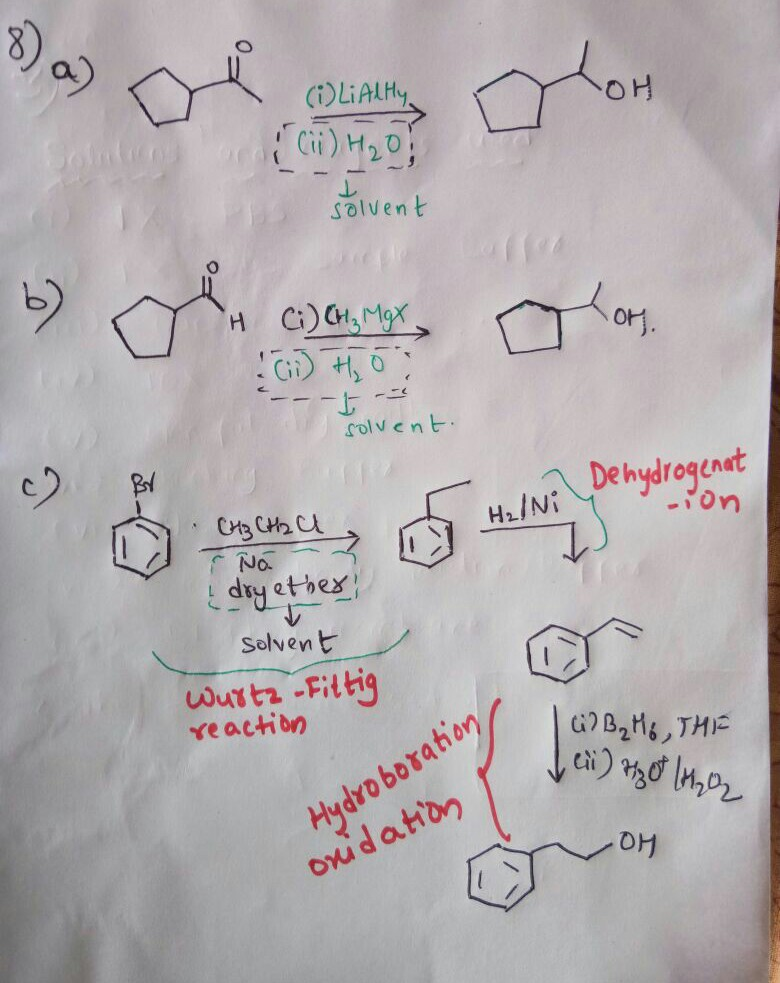 8) a)
O
(i) LiAlH4
(ii) H2O
↓
solvent
OH
b)
O
H
(i) CH3MgX
(ii) H2O
↓
solvent.
OH.
c)
Br
CH3CH2Cl
Na
dry ether
↓
solvent
Wurtz-Fittig
reaction
H2/Ni
Dehydrogenat
-ion
(i) B2H6, THF
(ii) H3O+/H2O2
Hydroboration
oxidation
OH